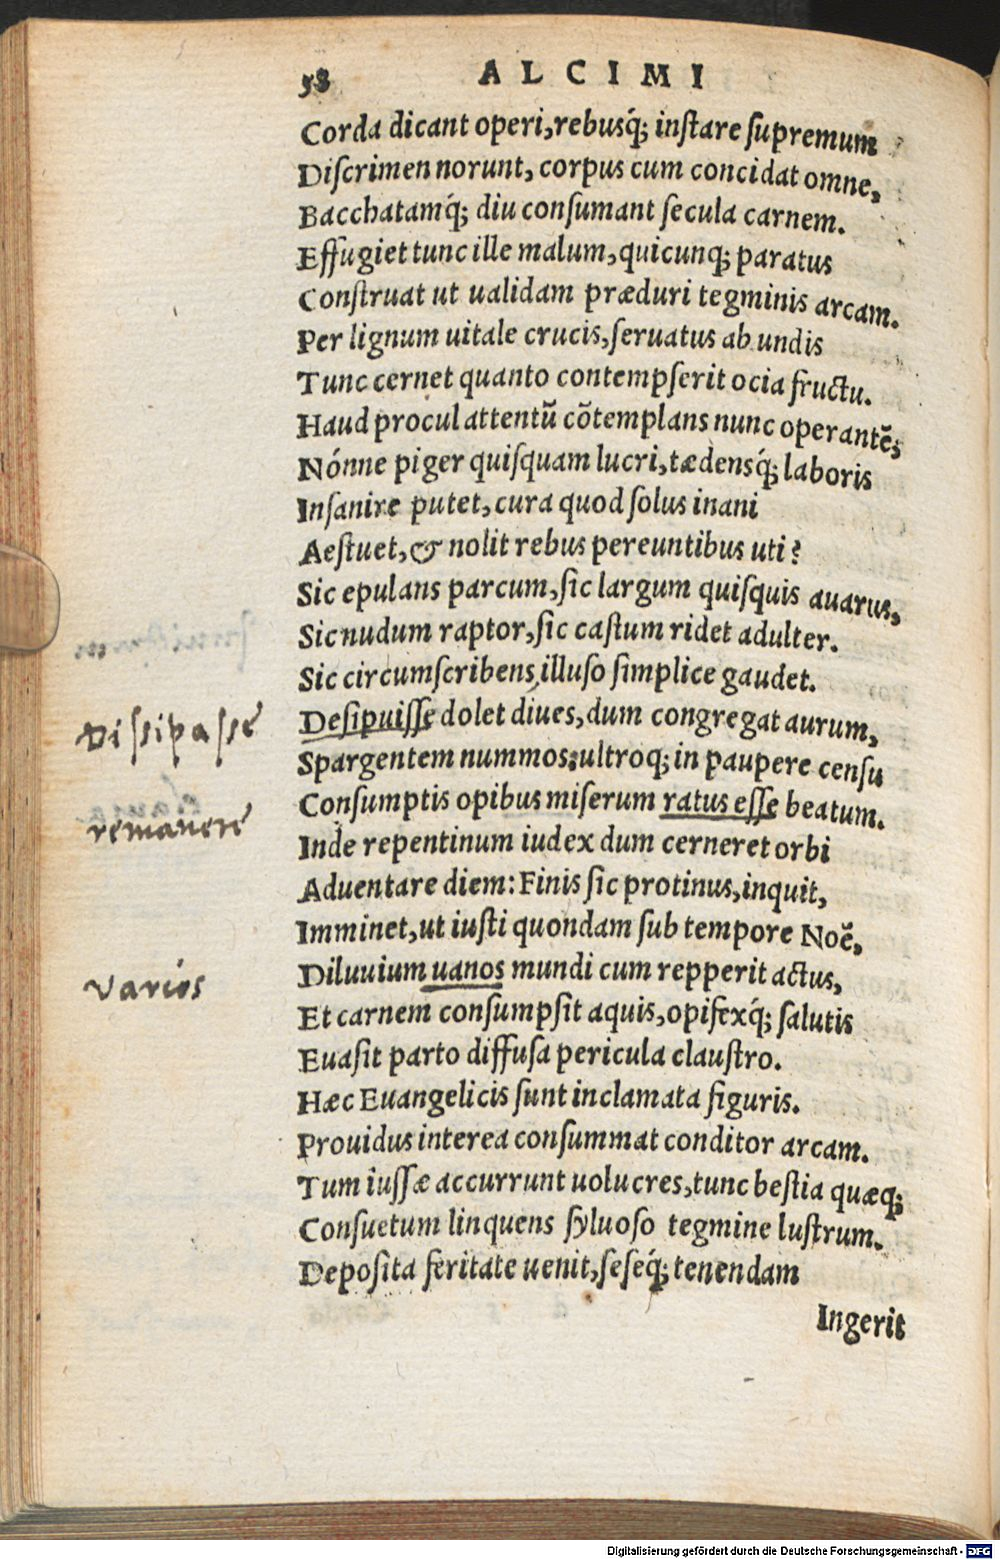 58 ALCIMI
Corda dicant operi, rebusq́; inſtare ſupremum
Diſcrimen norunt, corpus cum concidat omne,
Bacchatamq́; diu conſumant ſecula carnem.
Effugiet tunc ille malum, quicunq; paratus
Conſtruat ut ualidam præduri tegminis arcam.
Per lignum uitale crucis, ſeruatus ab undis
Tunc cernet quanto contempſerit ocia fructu.
Haud procul attentū cōtemplans nunc operantē,
Nónne piger quiſquam lucri, tædensq́; laboris
Inſanire putet, cura quod ſolus inani
Aeſtuet, & nolit rebus pereuntibus uti?
Sic epulans parcum, ſic largum quiſquis auarus,
Sic nudum raptor, ſic caſtum ridet adulter.
Sic circumſcribens illuſo ſimplice gaudet.
Deſipuiſſe dolet diues, dum congregat aurum,
Dissipasse
Spargentem nummos: ultroq; in paupere cenſu
Conſumptis opibus miſerum ratus eſſe beatum.
remanere
Inde repentinum iudex dum cerneret orbi
Aduentare diem: Finis ſic protinus, inquit,
Imminet, ut iuſti quondam ſub tempore Noē,
Diluuium uanos mundi cum repperit actus,
varios
Et carnem conſumpſit aquis, opifexq́; ſalutis
Euaſit parto diffuſa pericula clauſtro.
Hæc Euangelicis ſunt inclamata figuris.
Prouidus interea conſummat conditor arcam.
Tum iuſſæ accurrunt uolucres, tunc beſtia quæq;
Conſuetum linquens ſyluoſo tegmine luſtrum.
Depoſita feritate uenit, ſeſeq́; tenendam
Ingerit
Digitalisierung gefördert durch die Deutsche Forschungsgemeinschaft - DFG